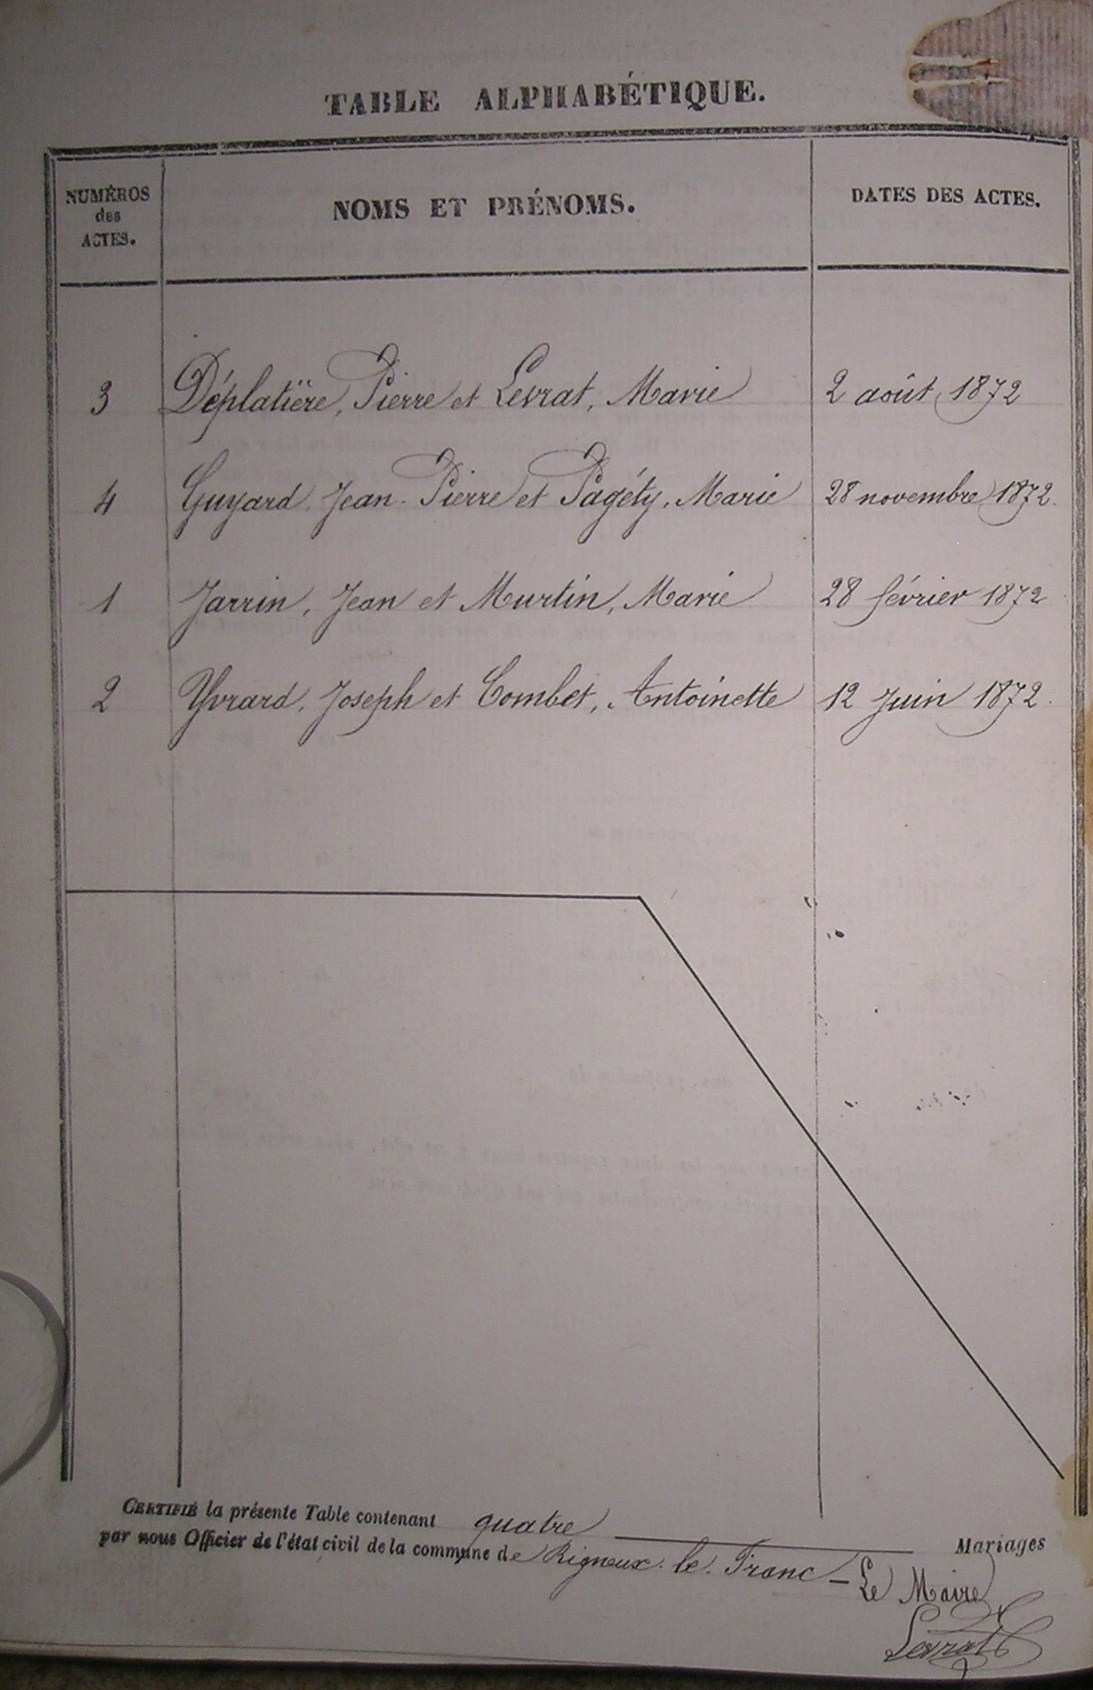 TABLE ALPHABÉTIQUE.
NUMÉROS
des
ACTES.
NOMS ET PRÉNOMS.
DATES DES ACTES.
3 Déplatière, Pierre et Levrat, Marie 2 août 1872
4 Guyard, Jean-Pierre et Pagéty, Marie 28 novembre 1872.
1 Jarrin, Jean et Murtin, Marie 28 février 1872
2 Yvrard, Joseph et Combet, Antoinette 12 Juin 1872.
CERTIFIÉ la présente Table contenant quatre Mariages
par nous Officier de l'état civil de la commune de Rigneux-le-Franc – Le Maire
Levrat